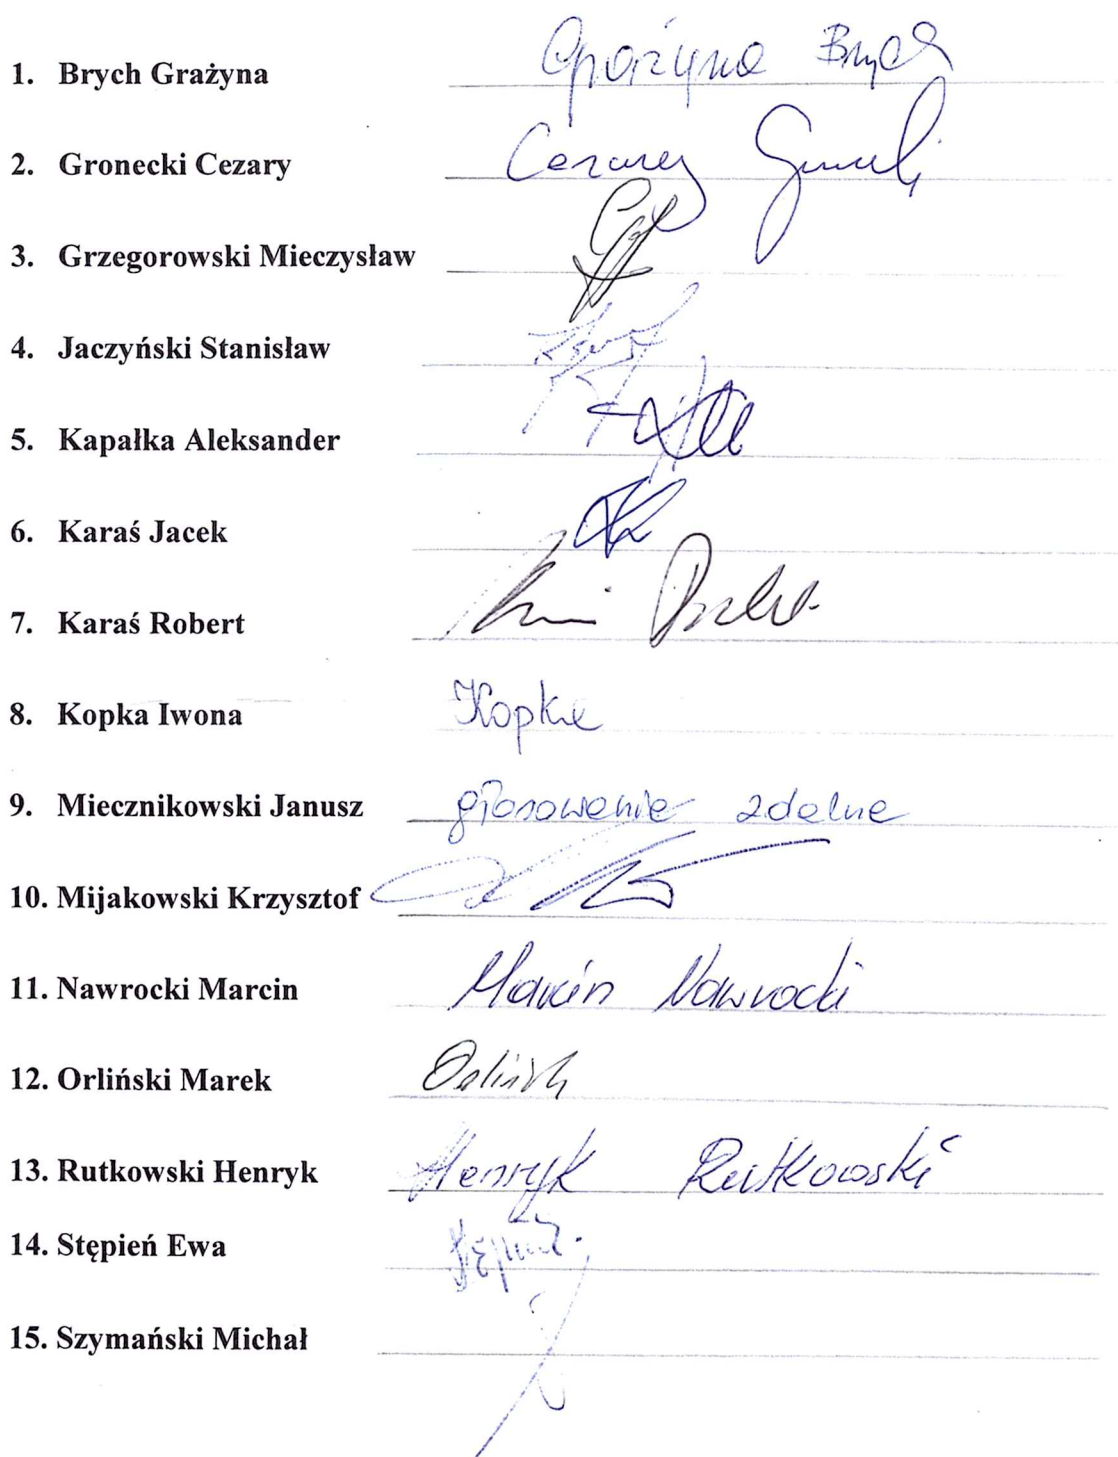 1. Brych Grażyna Grażyna Brych
2. Gronecki Cezary Cezary
3. Grzegorowski Mieczysław
4. Jaczyński Stanisław
5. Kapałka Aleksander
6. Karaś Jacek
7. Karaś Robert
8. Kopka Iwona Kopka
9. Miecznikowski Janusz głosowanie zdalne
10. Mijakowski Krzysztof
11. Nawrocki Marcin Marcin Nawrocki
12. Orliński Marek
13. Rutkowski Henryk Henryk Rutkowski
14. Stępień Ewa
15. Szymański Michał